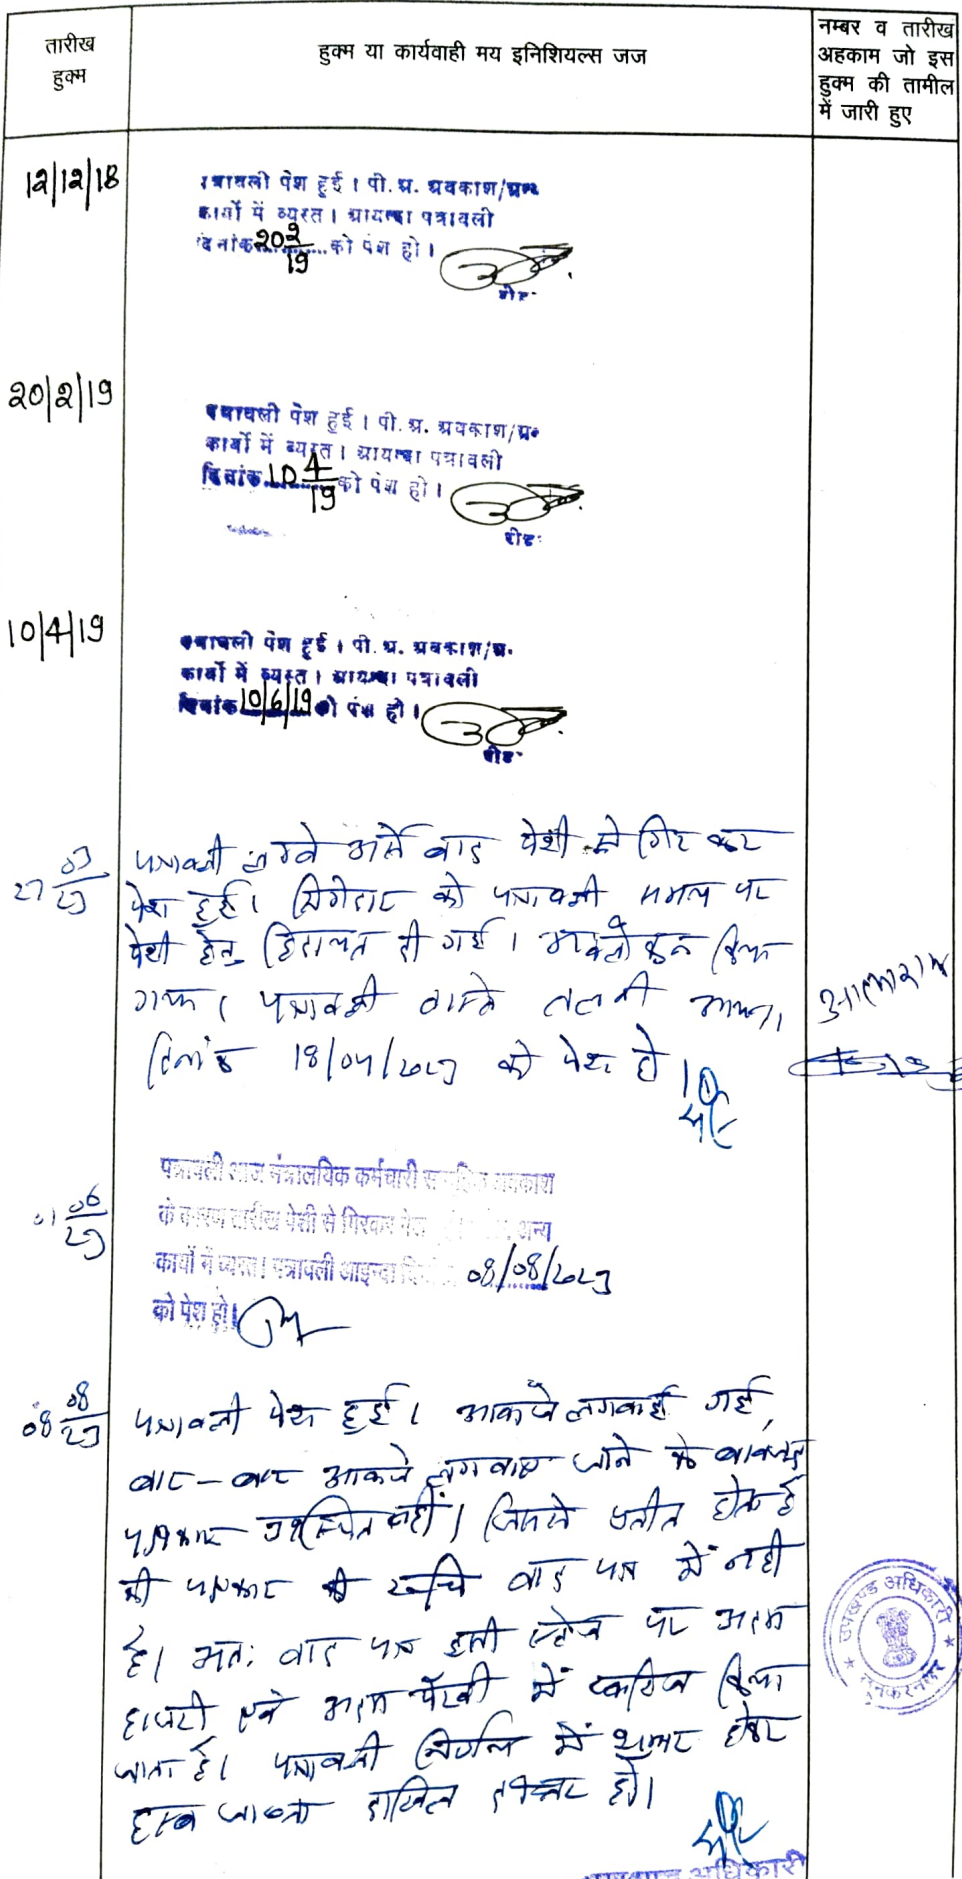 तारीख
हुक्म
हुक्म या कार्यवाही मय इनिशियल्स जज
नम्बर व तारीख
अहकाम जो इस
हुक्म की तामील
में जारी हुए
12/12/18
पत्रावली पेश हुई । पी.अ. अवकाश/अन्य
कार्यो में व्यस्त । आयन्दा पत्रावली
दिनांक 20 2/19 को पेश हो ।
रीडर
20/2/19
पत्रावली पेश हुई । पी.अ. अवकाश/अन्य
कार्यो में व्यस्त । आयन्दा पत्रावली
दिनांक 10 4/19 को पेश हो ।
रीडर
10/4/19
पत्रावली पेश हुई । पी.अ. अवकाश/अ.
कार्यो में व्यस्त । आयन्दा पत्रावली
दिनांक 10/6/19 को पेश हो ।
रीडर
पत्रावली लम्बे अर्से बाद पेशी से गिर कर
पेश हुई। को पत्रावली समय पर
पेशी हेतु हिदायत दी गई । अवलोकन किया
गया । पत्रावली वास्ते तलबी
दिनांक 18/04/2023 को पेश हो
पत्रावली आज मंत्रालयिक कर्मचारी अवकाश
के कारण तारीख पेशी से गिरकर पेश अन्य
कार्यो में व्यस्त। पत्रावली आइन्दा 08/08/2023
को पेश हो।
08 08/23
पत्रावली पेश हुई । आवाजे लगवाई गई,
बार-बार आवाजे लगवाए जाने के बावजूद
पक्षकार उपस्थित नहीं। जिससे प्रतीत होता है
की पक्षकार की रूचि वाद पत्र में नही
है। अतः वाद पत्र इसी स्टेज पर अदम
हाजरी एवं अदम पैरवी में खारिज किया
जाता है। पत्रावली निर्णित में शुमार होकर
दाखिल दफ्तर हो।
उपखण्ड अधिकारी
लूनकरनसर
अधिकारी